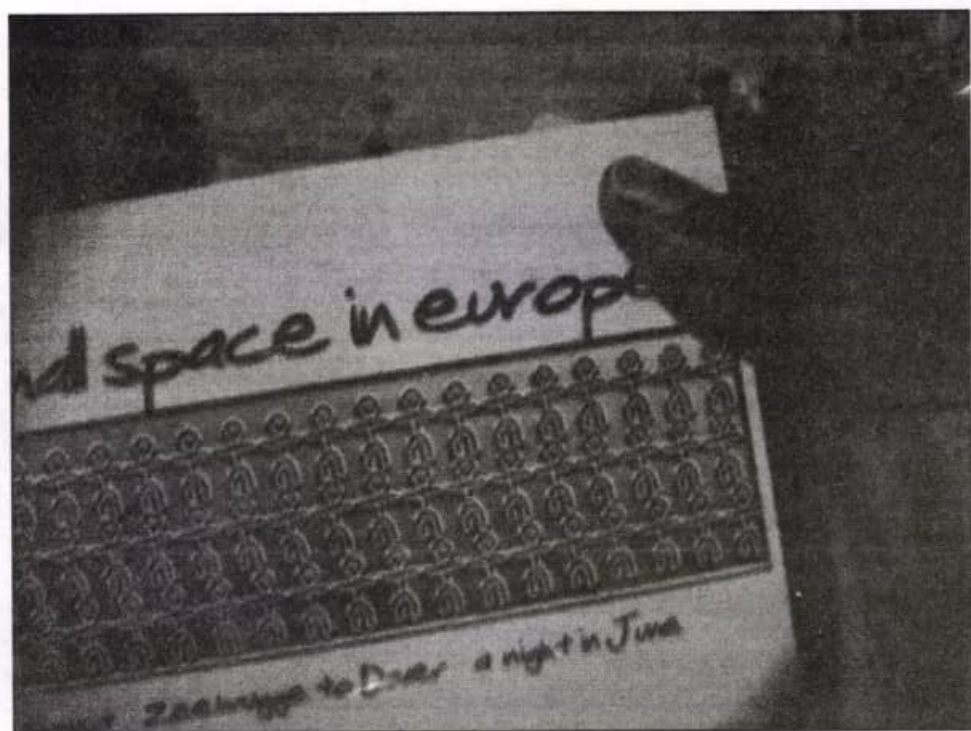 space in europe
Zeebrugge to Dover a night in June